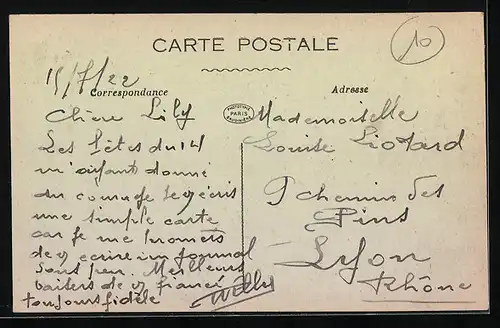 CARTE POSTALE
10
15/7/22
Correspondance
Adresse
Chère Lily
Les fêtes du 14
m'ayant donné
du courage je v écris
une simple carte
car je me promets
de v écrire un journal
sous peu. Meilleurs
baisers de v fiancé
toujours fidèle
Willy
PARIS
Mademoiselle
Louise Liotard
9 chemin des
Pins
Lyon
Rhône